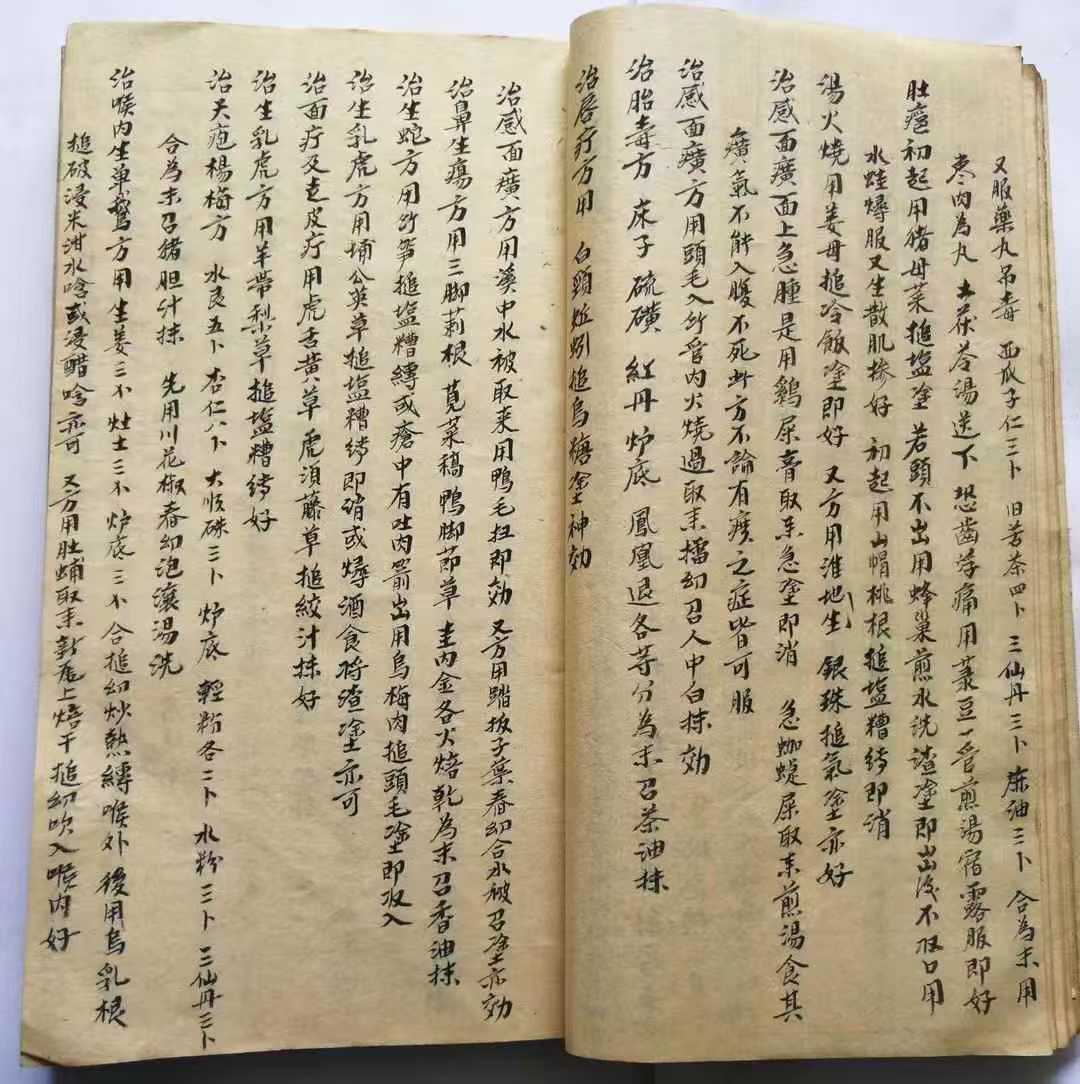 又服藥丸吊毒 西瓜子仁三卜 旧苦茶四卜 三仙丹三卜 麻油三卜 合為末用
枣肉為丸 土茯苓湯送下 恐齒浮痛用菉豆一管煎湯宿露服即好
肚癌初起用猪母菜搥塩塗 若頭不出用蜂巢煎水洗渣塗即出後不收口用
水蛙燖服又生散肌摻好 初起用山帽桃根搥塩糟縛即消
湯火燒用姜母搥冷飯塗即好 又方用淮地生 銀珠搥氣塗亦好
治感面癀面上急腫是用鷄屎膏取末急塗即消 急蜘蜓屎取末煎湯食其
癀氣不能入腹不死此方不論有痰之症皆可服
治感面癀方用頭毛入竹管内火燒過取末擂幼召人中白抹効
治胎毒方 床子 硫磺 紅丹 炉底 鳳凰退各等分為末召茶油抹
治唇疔方用 白頸蚯蚓搥烏糖塗神効
治感面癀方用溪中水被取来用鴨毛扫即効 又方用踏扳子葉舂幼合水被召塗亦効
治鼻生瘍方用三脚莿根 莧菜稿 鴨脚莭草 圭内金各火焙乾為末召香油抹
治生蛇方用竹笋搥塩糟縛或瘡中有吐肉箭出用烏梅肉搥頭毛塗即收入
治生乳虎方用埔公英草搥塩糟縛即消或燖酒食将渣塗亦可
治面疔及走皮疔用虎舌黄草 虎須藤草搥絞汁抹好
治生乳虎方用羊带梨草搥塩糟縛好
治天疱楊梅方 水艮五卜 杏仁八卜 大順硃三卜 炉底 輕粉各二卜 水粉三卜 三仙丹三卜
合為末召猪胆汁抹 先用川花椒舂幼泡滚湯洗
治喉内生单鵞方用生姜三不 灶土三不 炉底三不 合搥幼炒熱縛喉外 後用烏乳根
搥破浸米泔水唅或浸醋唅亦可 又方用肚蜅取末新瓦上焙干搥幼吹入喉内好